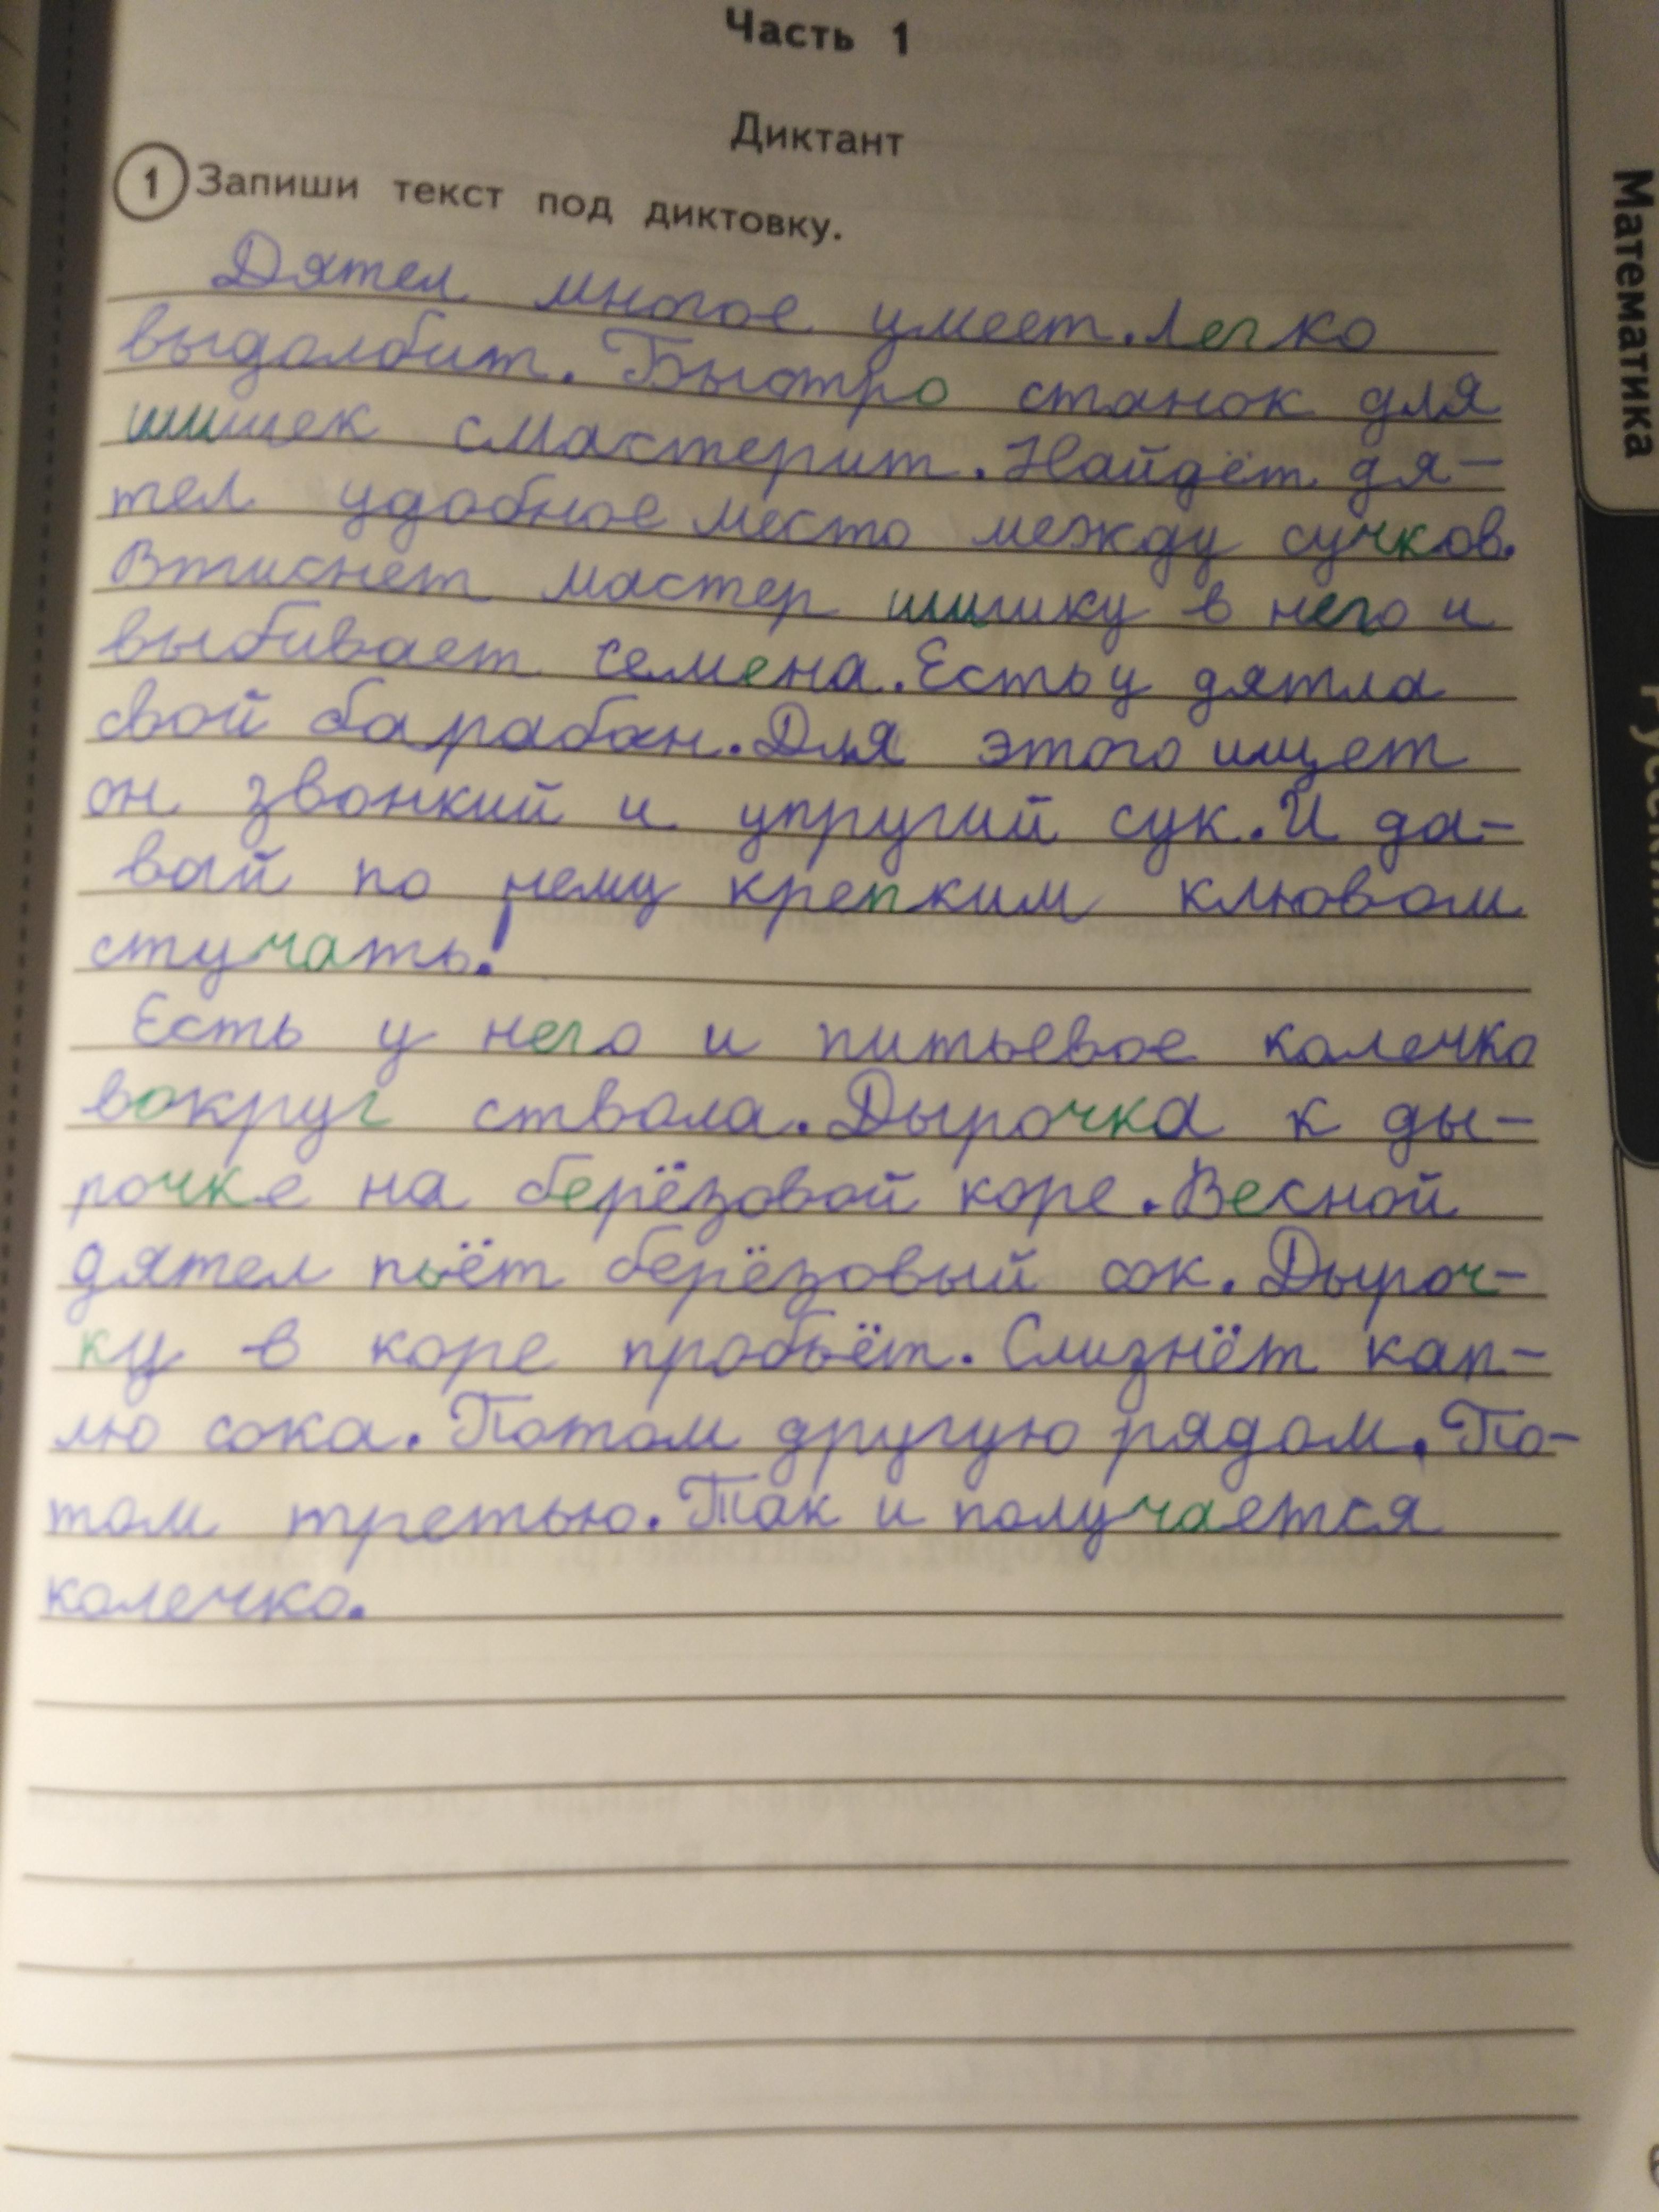 Часть 1
Диктант
1 Запиши текст под диктовку.
Дятел многое умеет. Легко
выдолбит. Быстро станок для
шишек смастерит. Найдёт дя-
тел удобное место между сучков.
Втиснет мастер шишку в него и
выбивает семена. Есть у дятла
свой барабан. Для этого ищет
он звонкий и упругий сук. И да-
вай по нему крепким клювом
стучать!
Есть у него и питьевое колечко
вокруг ствола. Дырочка к ды-
рочке на берёзовой коре. Весной
дятел пьёт берёзовый сок. Дыроч-
ку в коре пробьёт. Слизнёт кап-
лю сока. Потом другую рядом. По-
том третью. Так и получается
колечко.
Математика